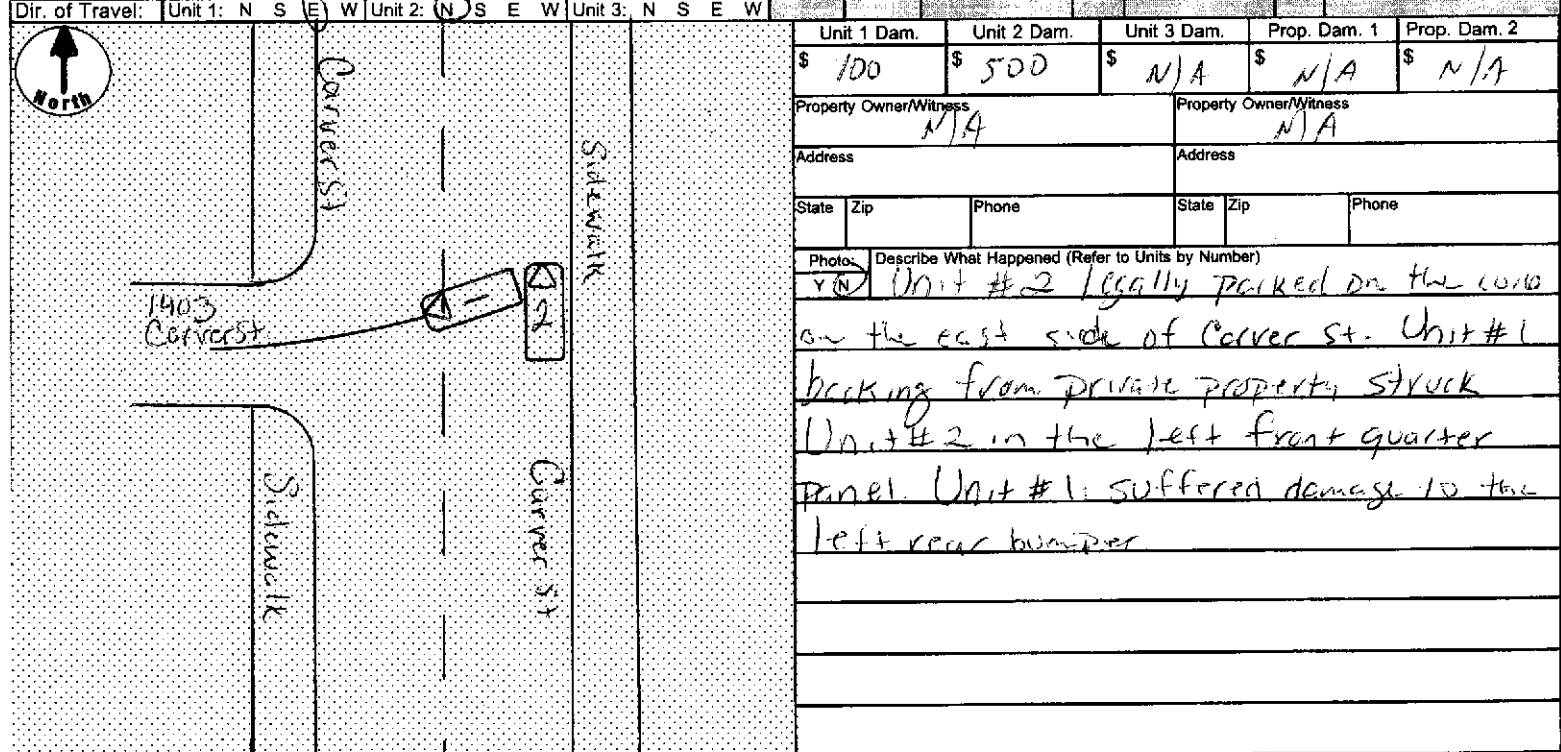 Dir. of Travel: Unit 1: N S E W Unit 2: N S E W Unit 3: N S E W
North
Carver St
Sidewalk
1403
Carver St.
1
2
Sidewalk
Carver St
Unit 1 Dam. Unit 2 Dam. Unit 3 Dam. Prop. Dam. 1 Prop. Dam. 2
$ 100 $ 500 $ N/A $ N/A $ N/A
Property Owner/Witness Property Owner/Witness
N/A N/A
Address Address
State Zip Phone State Zip Phone
Photo: Describe What Happened (Refer to Units by Number)
Y N Unit #2 legally parked on the curb
on the east side of Carver St. Unit #1
backing from private property struck
Unit #2 in the left front quarter
panel. Unit #1 suffered damage to the
left rear bumper